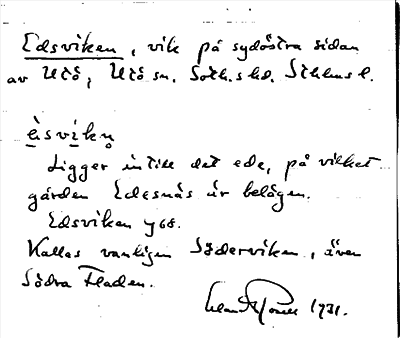 Edsviken, vik på sydöstra sidan
av Utö, Utö sn. Soth.s hd. Sthlms l.
è̱sviḵn̥
Ligger intill det ede, på vilket
gården Edesnäs är belägen.
Edsviken 768.
Kallas vanligen Söderviken, även
Södra Fladen.
1931.